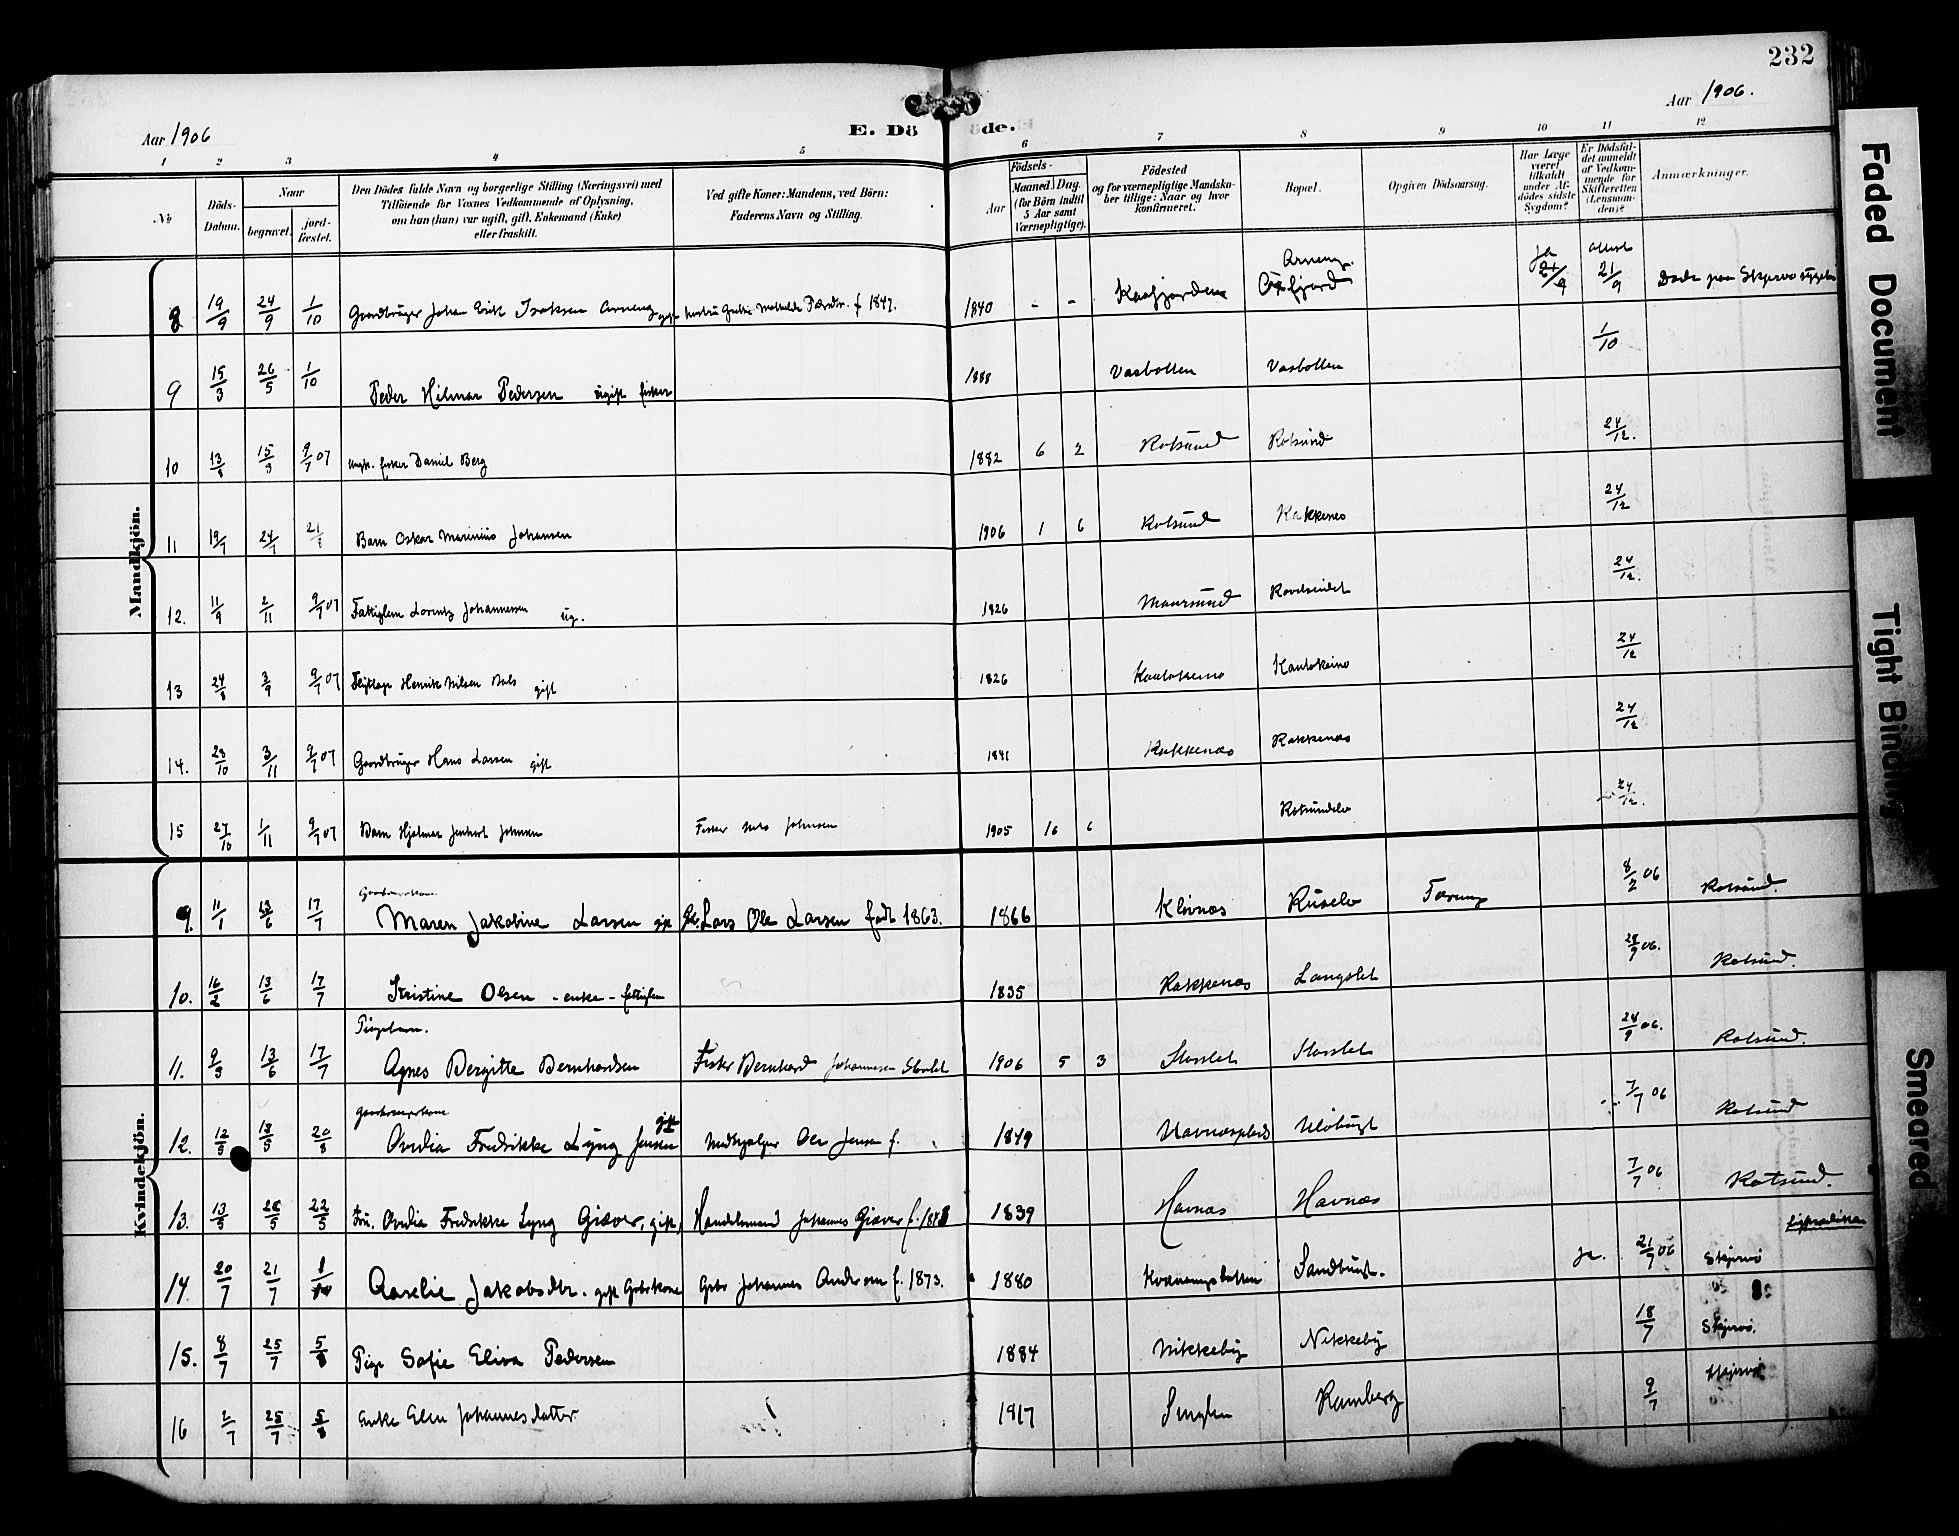 232
Aar 1906
E. Dö
de.
Aar 1906.
1 2 3 4 5 6 7 8 9 10 11 12
№
Döds-Datum.
Naar
begravet.
jord-fæstet.
Den Dödes fulde Navn og borgerlige Stilling (Næringsvei) med
Tilföiende for Voxnes Vedkommende af Oplysning,
om han (hun) var ugift, gift, Enkemand (Enke)
eller fraskilt.
Ved gifte Koner: Mandens, ved Börn:
Faderens Navn og Stilling.
Födsels-
Aar
Maaned. Dag.
(for Börn indtil
5 Aar samt
Værnepligtige).
Födested
og for værnepligtige Mandska-
ber tillige: Naar og hvor
konfirmeret.
Bopæl.
Opgiven Dödsaarsag.
Har Læge
været
tilkaldt
under Af-
dödes sidste
Sygdom?
Er Dödsfal-
det anmeldt
af Vedkom-
mende for
Skifteretten
(Lensman-
den)?
Anmærkninger.
Mandkjön.
8 19/9 24/9 1/10 Gaardbruger Johan Erik Isaksen Arneng 1840 - - Kaafjorden Arneng. Oxfjord 21/9
9 15/3 26/5 1/10 Peder Hilmar Pedersen ugift fisker 1888 Vasbotten Vasbotten 1/10
10 13/8 15/9 9/7 07 Ungk. fisker Daniel Berg 1882 6 2 Rotsund Rotsund 24/12.
11 19/7 24/7 Barn Oskar Marinius Johansen 1906 1 6 Rotsund Kakkenes 24/12
12. 11/9 2/11 9/7 07 Fattiglem Lorentz Johannessen ug. 1826 Maursund 24/12.
13 24/8 3/9 9/7 07 Henrik Nilsen gift 1826 Kautokeino Kautokeino 24/12
14. 23/10 3/11 9/7 07 Gaardbruger Hans Larsen gift 1841 Kakkenæs Kakkenæs 24/12
15 27/10 1/11 9/7 07 Barn Hjalmar Johnsen Fisker Nils Johnsen 1905 16 6 Rotsundelv 24/12.
Kvindekjön.
9. 11/1 13/6 17/7 Maren Jakobine Larsen gift Gb. Lars Ole Larsen født 1863. 1866 Klovnæs 8/2 06 Rotsund.
10. 16/2 13/6 17/7 Kristine Olsen - enke - fattiglem 1835 Kakkenæs Langslet 28/9 06. Rotsund.
Pigebarn.
11. 9/3 13/6 17/7 Agnes Bergitte Bernhardsen Fisker Bernhard Johannesen Storslet 1906 5 3 Storslet Storslet 28/9 06. Rotsund.
12. 12/5 18/5 20/8 Ovidia Fredrikke Lyng Jensen gift Ole Jensen f. 1849 Havnæs 7/7 06 Rotsund
13. 13/5 28/5 22/5 Fru. Ovidia Fredrikke Lyng Giæver, gift, Handelsmand Johannes Giæver f. 1848 1839 Havnæs Havnæs 7/7 06 Rotsund.
14. 20/7 21/7 Aaselie Jakobsdtr. gift Gbrkone Gbr Johannes Andersen f. 1873. 1880 Kvænangsbotten Sandbugt. Ja. 21/7 06 Skjervö
15. 8/7 25/7 5/8 Pige Sofie Elina Pedersen 1884 Nikkeby Nikkeby 18/7 Skjervö.
16 2/7 25/7 5/8 Enke Elen Johannesdatter 1817 Ramberg 9/7 Skjervö
Faded Document
Tight Binding
Smeared